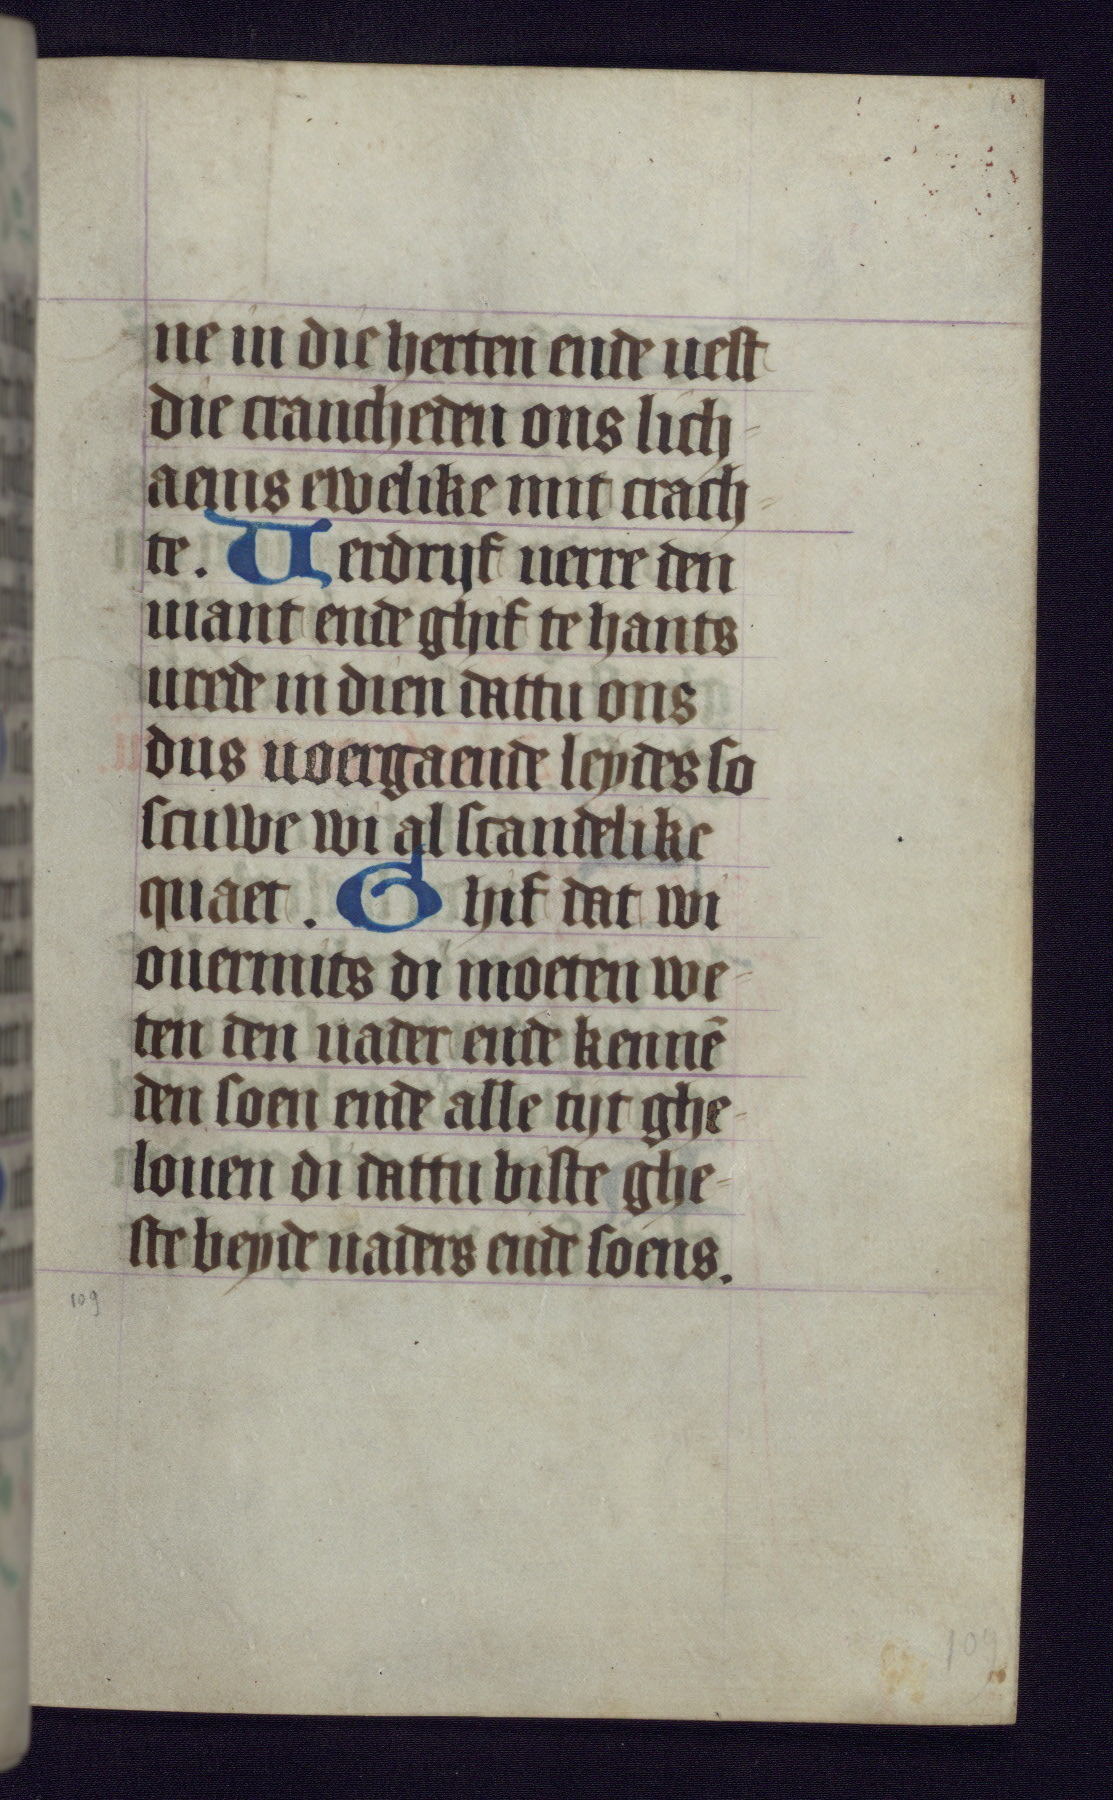 ne in die herten ende uest
die crancheden ons lich-
aems ewelike mit crach-
te. Uerdrijf uerre den
uiant ende ghif te hants
urede in dien dattu ons
dus uoergaende leydes so
scuwe wi al scandelike
quaet. Ghif dat wi
ouermits di moeten we-
ten den uader ende kennē
den soen ende alle tijt ghe-
louen di dattu biste ghe-
ste beyde uaders ende soens.
109
109